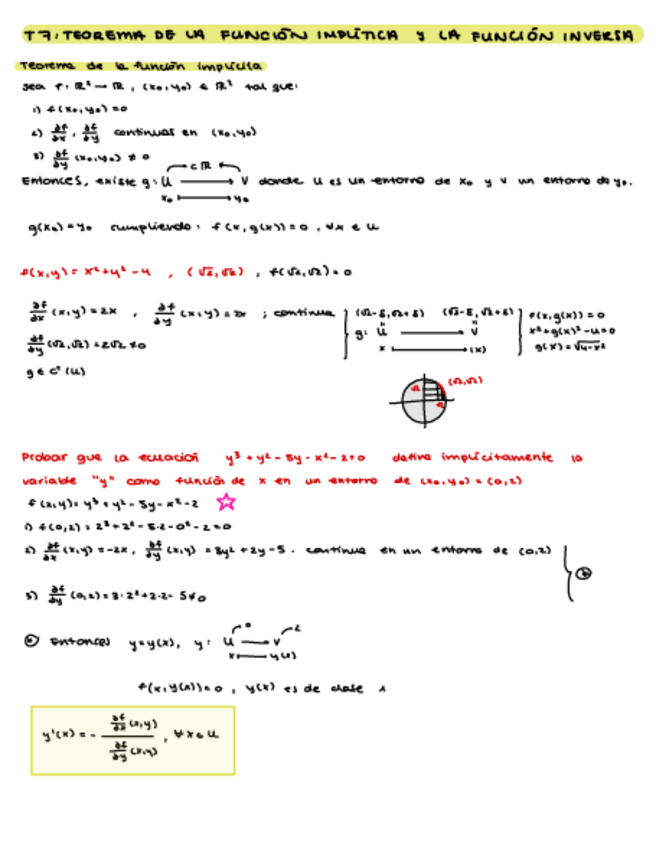 T7: TEOREMA DE LA FUNCIÓN IMPLÍTICA Y LA FUNCIÓN INVERSA
Teorema de la función implícita
Sea f: ℝ² → ℝ, (x₀,y₀) ∈ ℝ² tal que:
1) f(x₀,y₀)=0
2) ∂f/∂x, ∂f/∂y continuas en (x₀,y₀)
3) ∂f/∂y (x₀,y₀) ≠ 0
⊂ ℝ
Entonces, existe g: U → V donde U es un entorno de x₀ y V un entorno de y₀.
x₀ ↦ y₀
g(x₀)=y₀ cumpliendo: f(x,g(x))=0, ∀x ∈ U
f(x,y)= x²+y²-4, (√2,√2), f(√2,√2)=0
∂f/∂x (x,y)=2x, ∂f/∂y (x,y)=2x; continua (√2-δ,√2+δ) (√2-δ,√2+δ) f(x,g(x))=0
g: U → V x²+g(x)²-4=0
∂f/∂y (√2,√2)=2√2≠0 x ↦ (x) g(x)=√4-x²
g ∈ C¹(U)
√2 (√2,√2)
√2
Probar que la ecuación y³+y²-5y-x²-2=0 define implícitamente la
variable "y" como función de x en un entorno de (x₀,y₀)=(0,2)
f(x,y)= y³+y²-5y-x²-2
1) f(0,2)=2³+2²-5·2-0²-2=0
2) ∂f/∂x (x,y)=-2x, ∂f/∂y (x,y)=3y²+2y-5. continua en un entorno de (0,2)
3) ∂f/∂y (0,2)=3·2²+2·2-5≠0
Entonces y=y(x), y: U → V
0 2
x ↦ y(x)
f(x,y(x))=0, y(x) es de clase 1
y'(x)= - ∂f/∂x (x,y) / ∂f/∂y (x,y), ∀x∈U